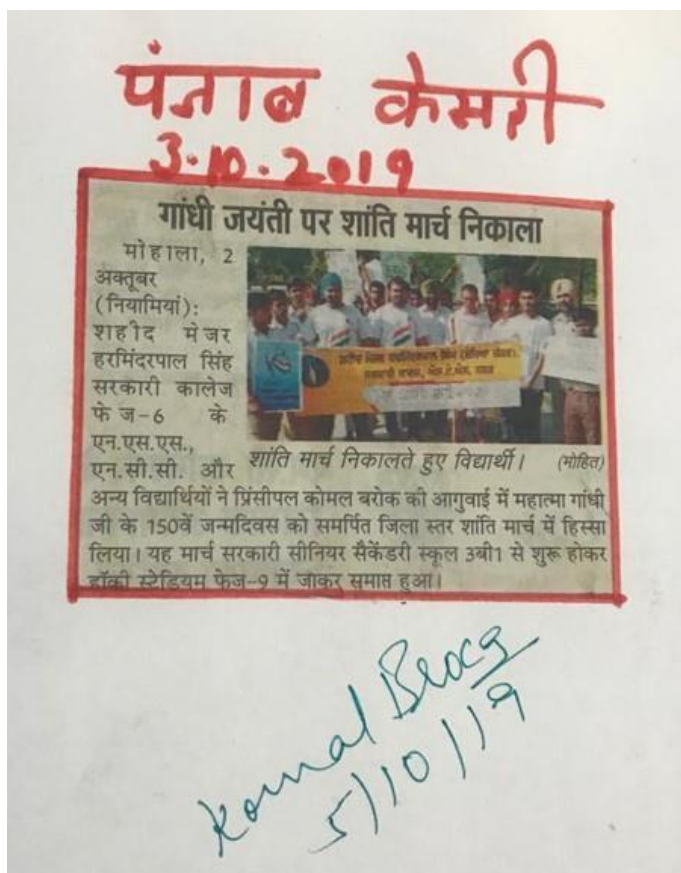 पंजाब केसरी
3.10.2019
गांधी जयंती पर शांति मार्च निकाला
मोहाला, 2
अक्तूबर
(नियामियां):
शहीद मेजर
हरमिंदरपाल सिंह
सरकारी कालेज
फेज-6 के
एन.एस.एस.,
एन.सी.सी. और
शांति मार्च निकालते हुए विद्यार्थी। (मोहित)
अन्य विद्यार्थियों ने प्रिंसीपल कोमल बरोक की आगुवाई में महात्मा गांधी
जी के 150वें जन्मदिवस को समर्पित जिला स्तर शांति मार्च में हिस्सा
लिया। यह मार्च सरकारी सीनियर सैकेंडरी स्कूल 3बी1 से शुरू होकर
हॉकी स्टेडियम फेज-9 में जाकर समाप्त हुआ।
Komal Broca
5/10/19